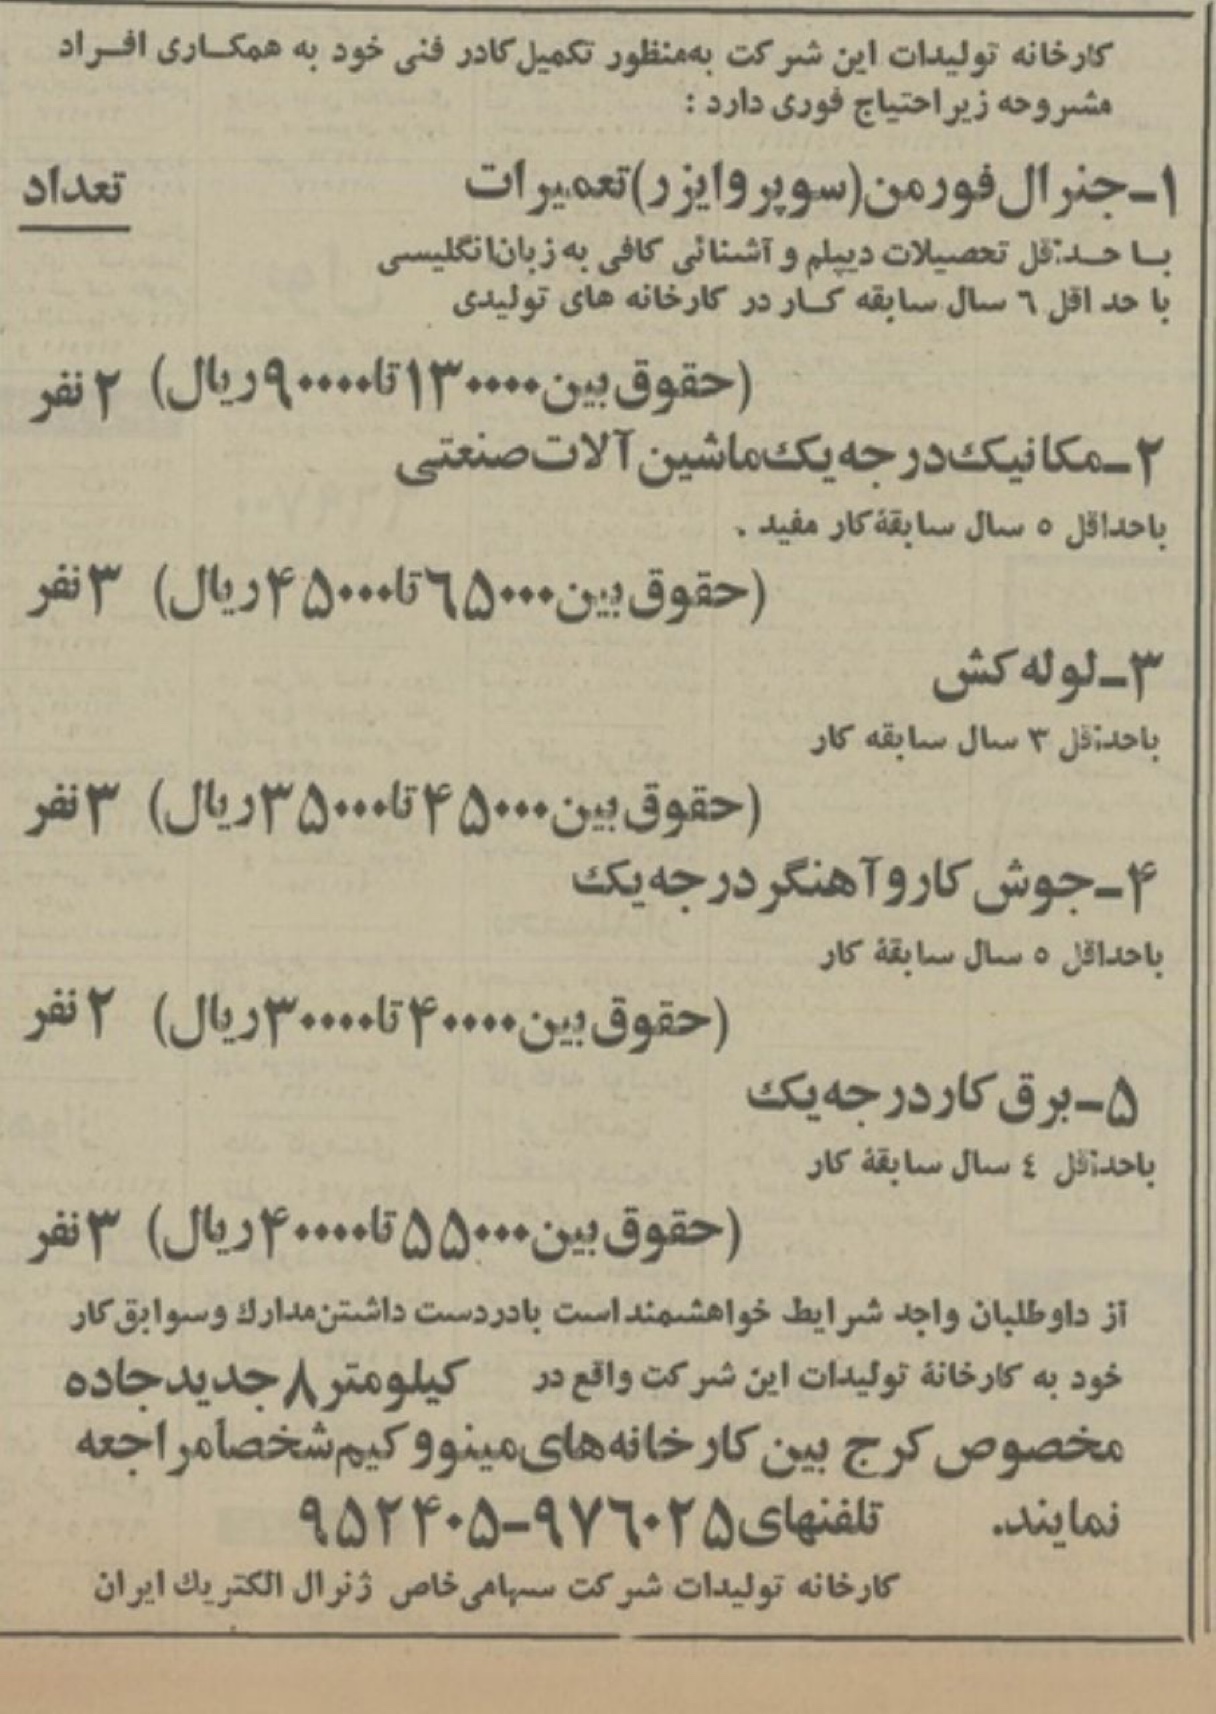 کارخانه تولیدات این شرکت به‌منظور تکمیل کادر فنی خود به همکاری افراد
مشروحه زیر احتیاج فوری دارد :
۱ـ جنرال فورمن (سوپر وایزر) تعمیرات تعداد
با حداقل تحصیلات دیپلم و آشنائی کافی به زبان انگلیسی
با حداقل ٦ سال سابقه کار در کارخانه های تولیدی
(حقوق بین ۱۳۰۰۰۰ تا ۹۰۰۰۰ ریال) ۲ نفر
۲ـ مکانیک درجه یک ماشین آلات صنعتی
باحداقل ٥ سال سابقهٔ کار مفید .
(حقوق بین ٦۵۰۰۰ تا ۴۵۰۰۰ ریال) ۳ نفر
۳ـ لوله کش
باحداقل ۳ سال سابقه کار
(حقوق بین ۴۵۰۰۰ تا ۳۵۰۰۰ ریال) ۳ نفر
۴ـ جوش کار و آهنگر درجه یک
باحداقل ٥ سال سابقهٔ کار
(حقوق بین ۴۰۰۰۰ تا ۳۰۰۰۰ ریال) ۲ نفر
۵ـ برق کار درجه یک
باحداقل ٤ سال سابقهٔ کار
(حقوق بین ۵۵۰۰۰ تا ۴۰۰۰۰ ریال) ۳ نفر
از داوطلبان واجد شرایط خواهشمند است بادردست داشتن مدارك وسوابق کار
خود به کارخانهٔ تولیدات این شرکت واقع در کیلومتر ۸ جدید جاده
مخصوص کرج بین کارخانه‌های مینو و کیم شخصاً مراجعه
نمایند. تلفنهای ۹۷٦۰۲۵-۹۵۲۴۰۵
کارخانه تولیدات شرکت سهامی خاص ژنرال الکتریك ایران